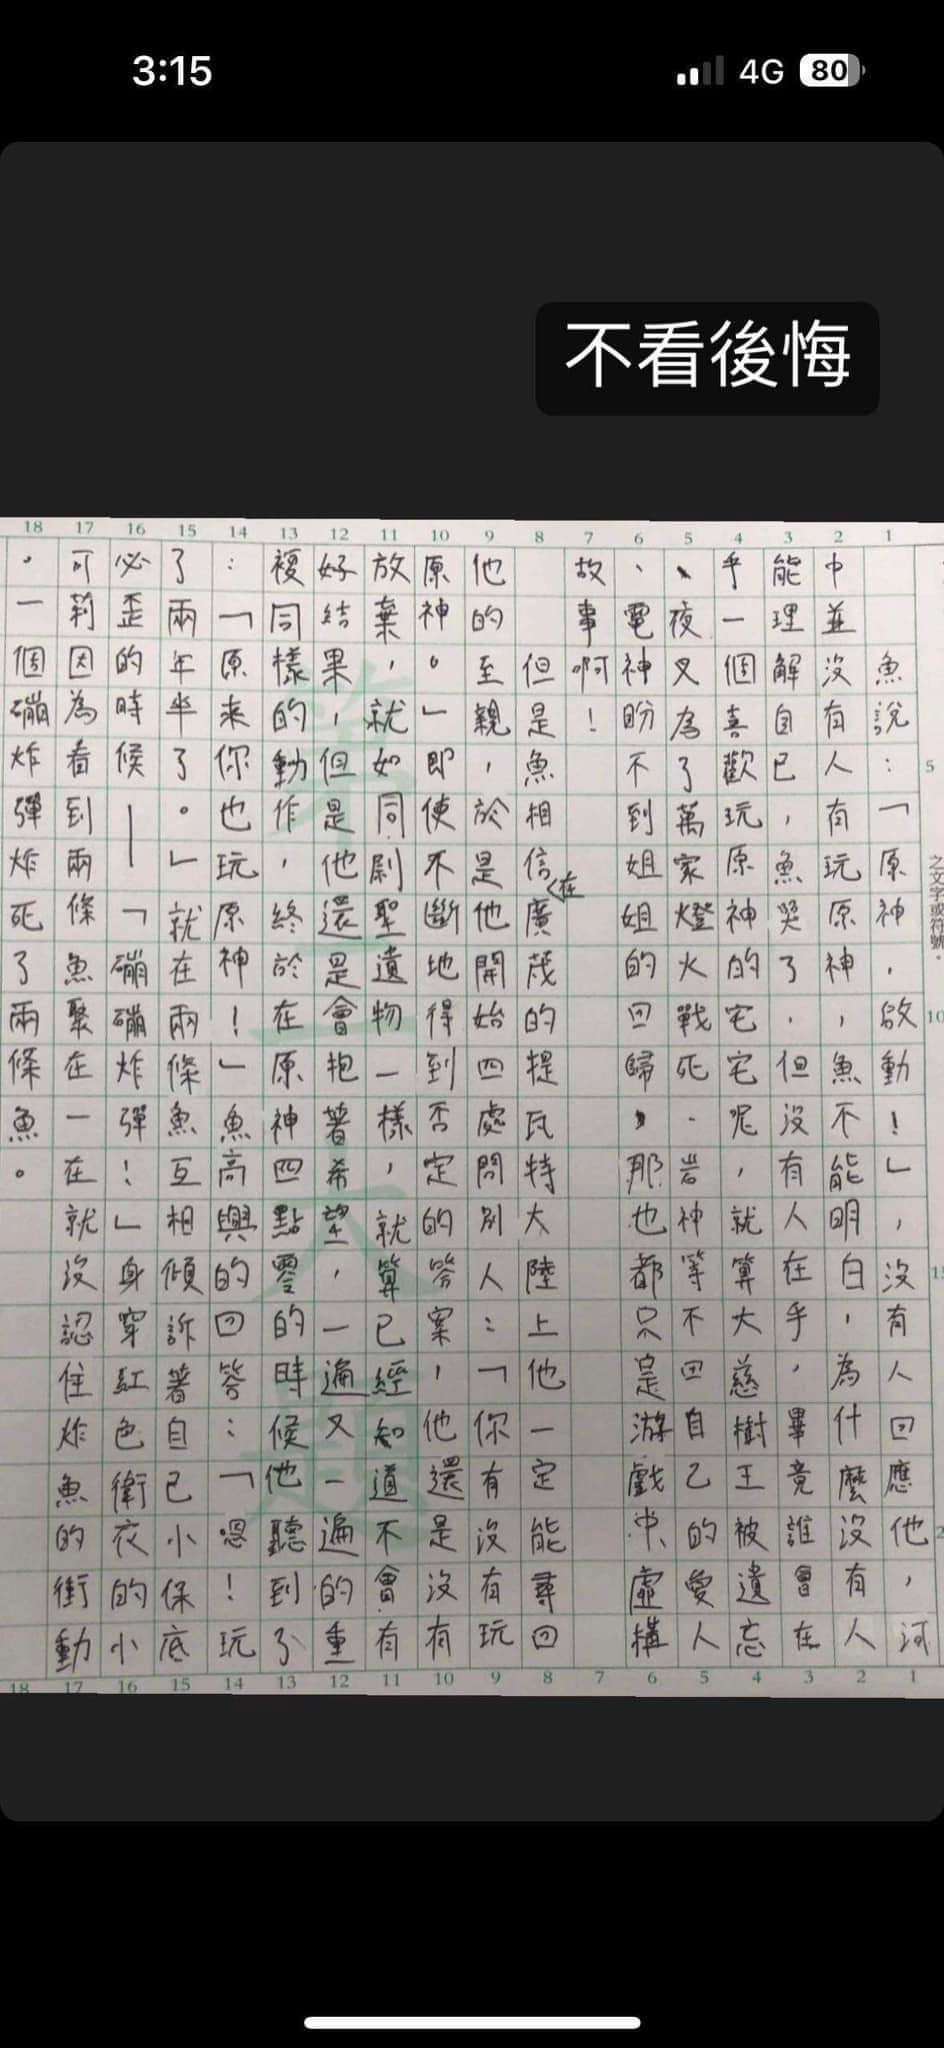 3:15
4G 80
不看後悔
之文字或符號。
1 2 3 4 5 6 7 8 9 10 11 12 13 14 15 16 17 18
魚說：「原神，啟動！」，沒有人回應他，河
中並沒有人有玩原神，魚不能明白，為什麼沒有人
能理解自已，魚哭了，但沒有人在乎，畢竟誰會在
乎一個喜歡玩原神的宅宅呢，就算大慈樹王被遺忘
、夜叉為了萬家燈火戰死、岩神等不回自己的愛人
、電神盼不到姐姐的回歸，那也都只是游戲中、虛構
故事啊！
但是魚相信在廣茂的提瓦特大陸上他一定能尋回
他的至親，於是他開始四處問別人：「你有沒有玩
原神。」即使不斷地得到否定的答案，他還是沒有
放棄，就如同刷聖遺物一樣，就算已經知道不會有
好結果，但是他還是會抱著希望，一遍又一遍的重
複同樣的動作，終於在原神四點零的時候他聽到了
：「原來你也玩原神！」魚高興的回答：「嗯！玩
了兩年半了。」就在兩條魚互相傾訴著自已小保底
必歪的時候——「磞磞炸彈！」身穿紅色衛衣的小
可莉因為看到兩條魚聚在一在就沒認住炸魚的衝動
。一個磞炸彈炸死了兩條魚。
5
10
1 2 3 4 5 6 7 8 9 10 11 12 13 14 15 16 17 18